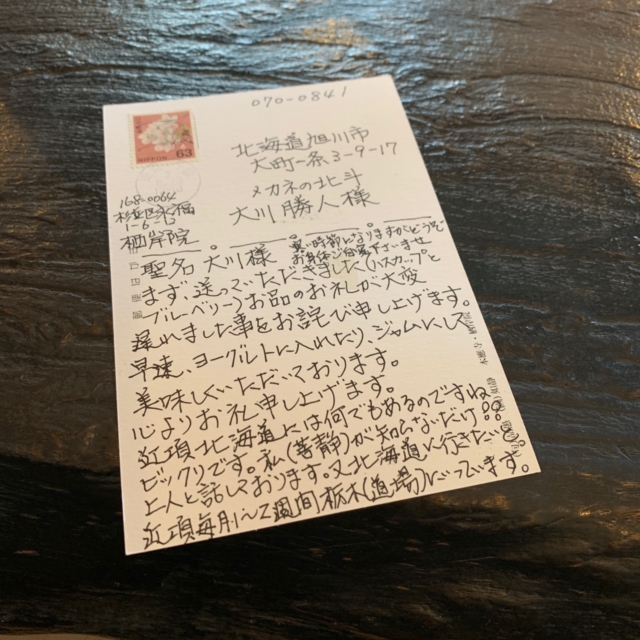 070-0841
北海道旭川市
大町一条3-9-17
メガネの北斗
大川勝人様
NIPPON 63
168-0064
杉並区永福
1-6-
栖岸院
聖名 大川様
暑い時節になりますがどうぞ
お身体ご自愛下さいませ
まず、送っていただきました(ハスカップと
ブルーベリー)お品のお礼が大変
遅れました事をお詫び申し上げます。
早速、ヨーグルトに入れたり、ジャムにして
美味しくいただいております。
心よりお礼申し上げます。
近頃北海道には何でもあるのですね
ビックリです。私(菩静)が知らないだけ!?
上人と話しております。又北海道へ行きたい
近頃毎月に2週間栃木(道場)に行っています。